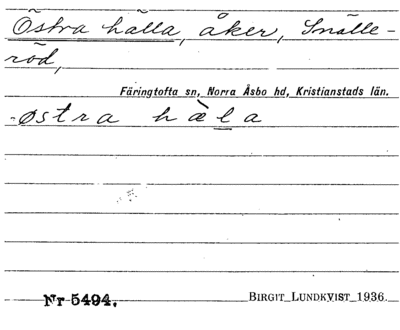 Östra hälla, åker, Snälle-
röd,
Färingtofta sn, Norra Åsbo hd, Kristianstads län.
østra hæ̀la
Nr 5494.
BIRGIT LUNDKVIST 1936.